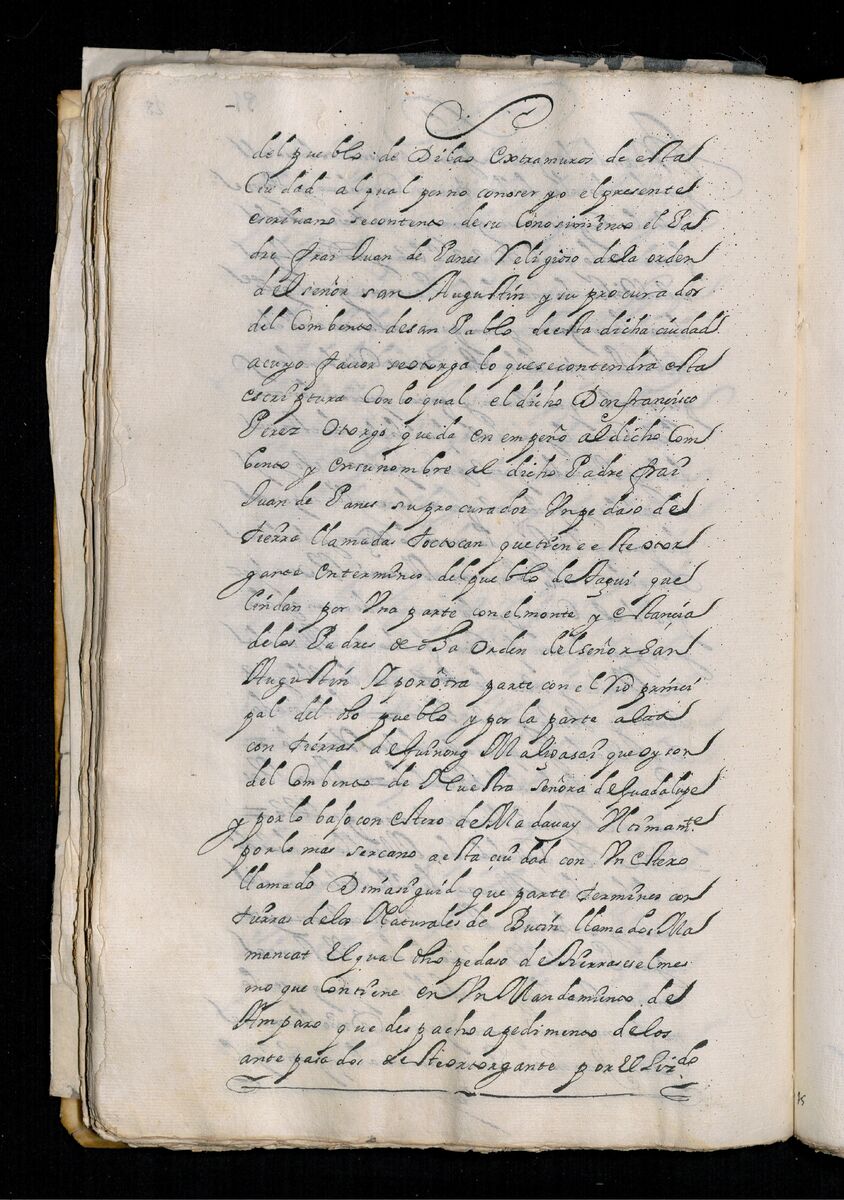 del pueblo de Dilao extramuros de esta
Ciudad al qual por no conoser yo el presente
escriuano se contento de su Conosimiento el Pa
dre frai Juan de Panes Religioso de la orden
del señor san Augustin y su procurador
del Combento de san Pablo de esta dicha ciudad
a cuyo fauor se otorga lo que se contendra esta
escriptura Con lo qual el dicho Don francisco
Perez Otorgo que da en empeño al dicho Com
bento y en su nombre al dicho Padre frai
Juan de Panes su procurador Un pedaso de
tierra llamadas Toctocan que tiene este otor
gante en terminos del pueblo de Taguı que
lindan por Una parte con el monte y estancia
de los Padres de dha Orden del señor San
Augustin Y por otra parte con el Rio princi
pal del dho pueblo y por la parte alta
con tierras de que oy son
del Combento de Nuestra señora de Guadalupe
y por lo bajo con estero de Madavay Ytimamte
por lo mas sercano a esta ciudad con Un estero
llamado Dimasiguil que parte terminos con
tierras de los Naturales de llamados Ma
mancat El qual dho pedaso de tierras es el mes
mo que Contiene en Un Mandamiento de
Amparo que despacho a pedimento de los
ante pasados de este otorgante por El Lizdo